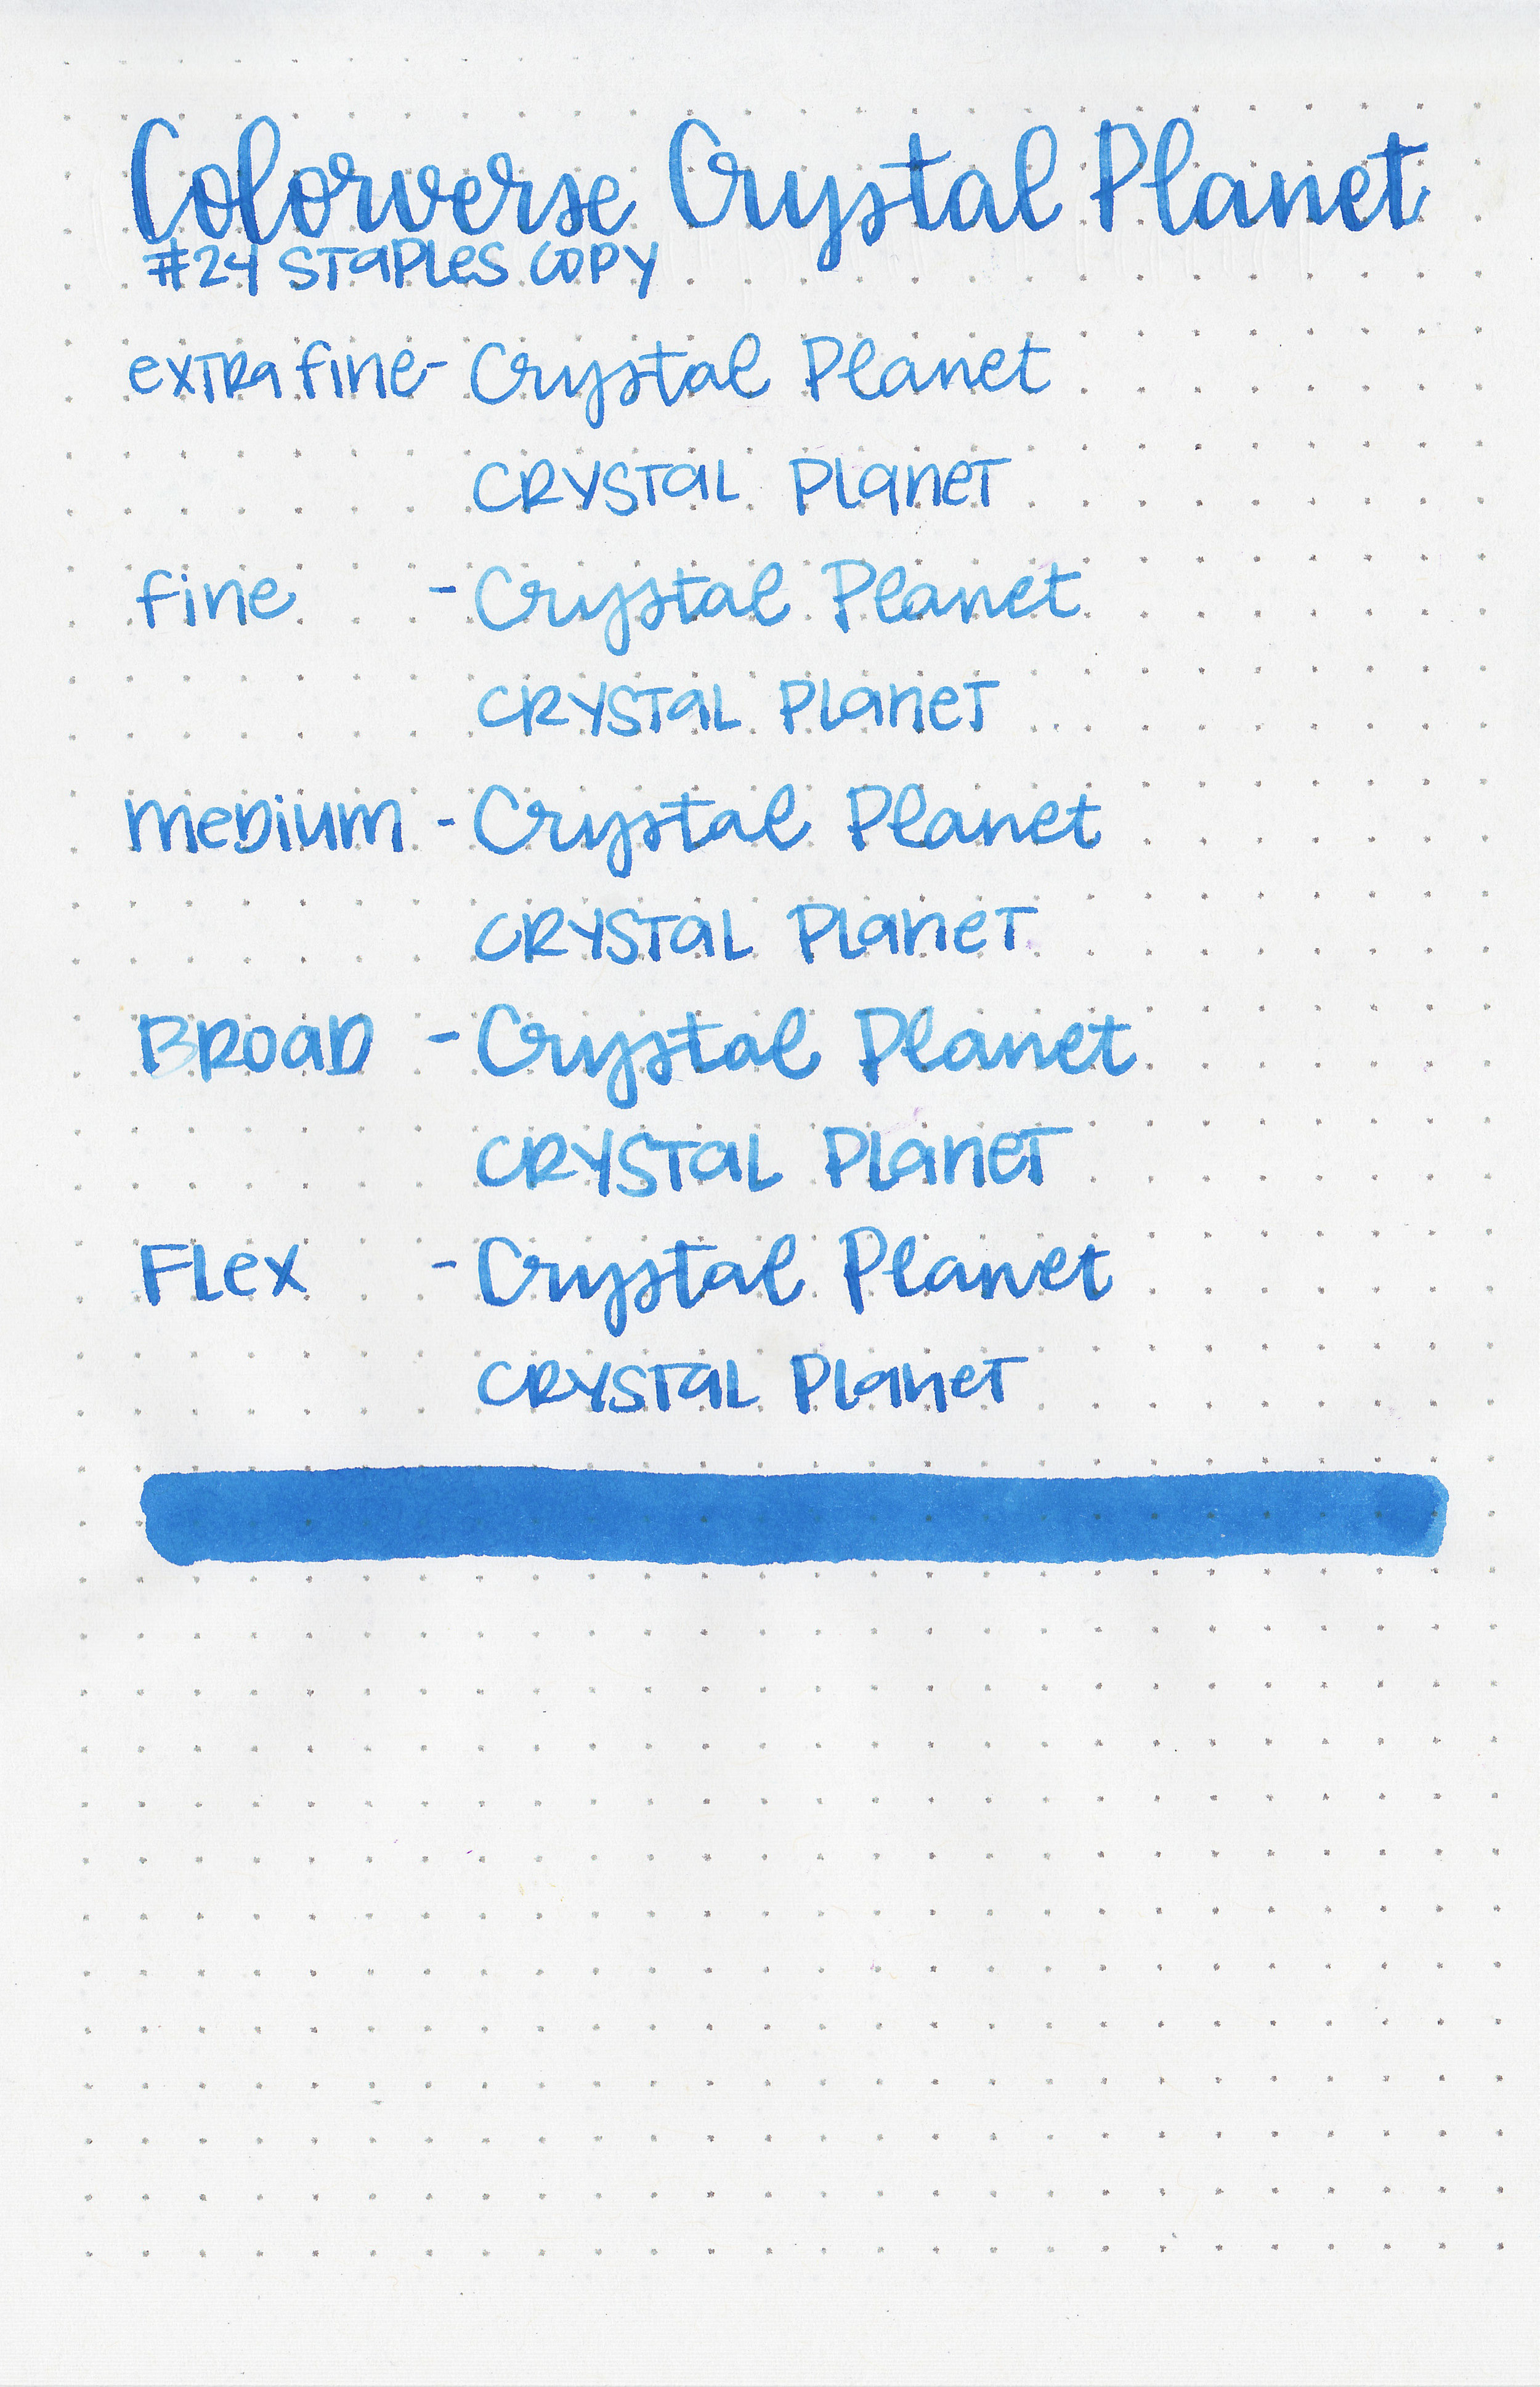 Colorverse Crystal Planet
#24 STaPLes COPY
exTRa fine- Crystal Planet
CRYSTaL PLaneT
fine - Crystal Planet
CRYSTaL PLaneT
meDium - Crystal Planet
CRYSTaL PLaneT
BROaD - Crystal Planet
CRYSTaL PLaneT
FLex - Crystal Planet
CRYSTaL PLaneT